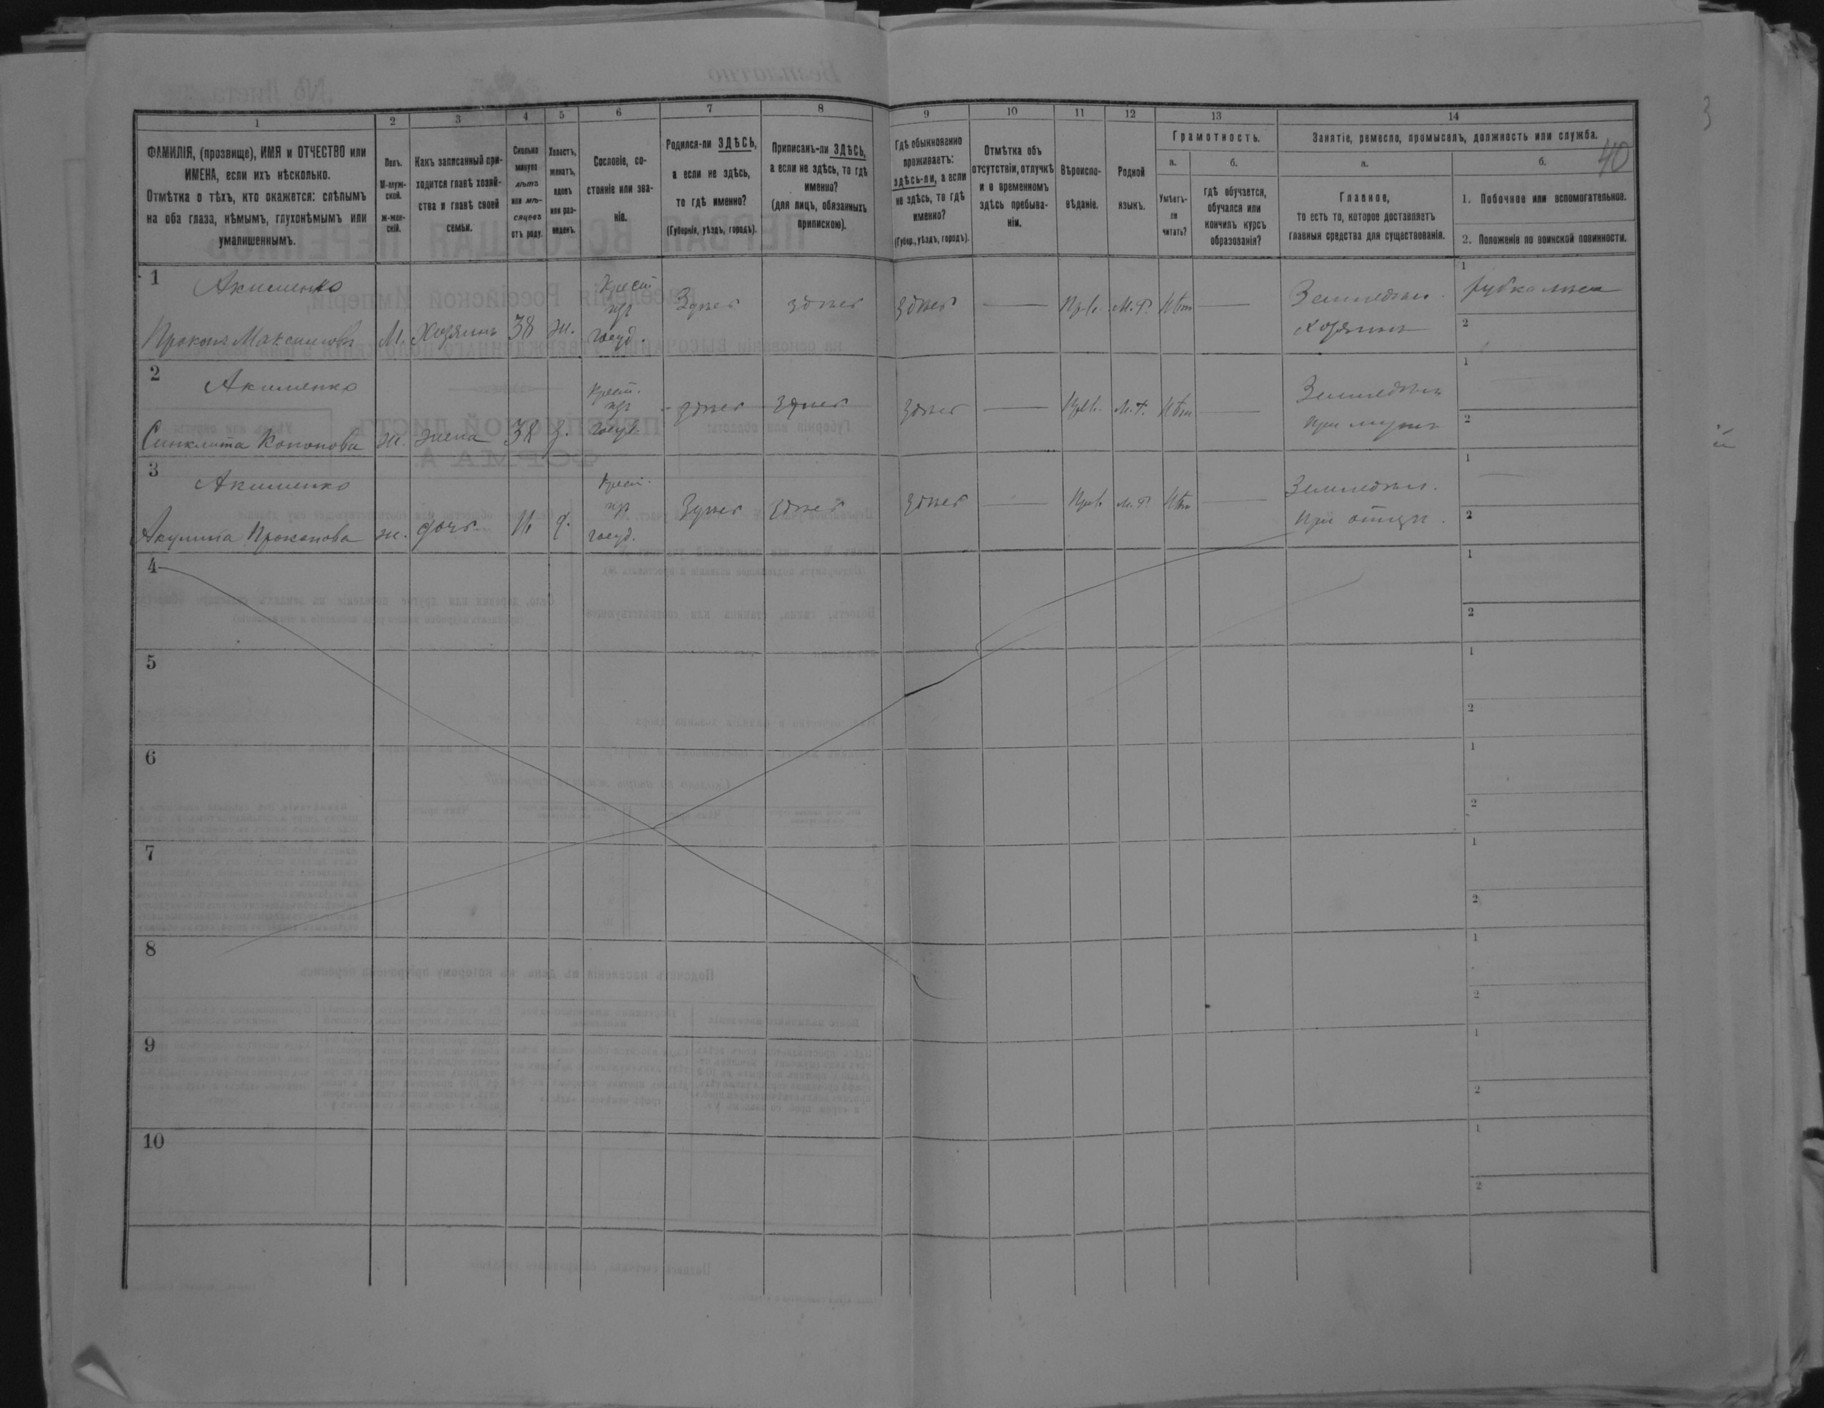 40
3
1 2 3 4 5 6 7 8 9 10 11 12 13 14
ФАМИЛІЯ, (прозвище), ИМЯ и ОТЧЕСТВО или
ИМЕНА, если ихъ нѣсколько.
Отмѣтка о тѣхъ, кто окажется: слѣпымъ
на оба глаза, нѣмымъ, глухонѣмымъ или
умалишеннымъ.
Полъ.
М-муж-
ской.
ж-жен-
скій.
Какъ записанный при-
ходится главѣ хозяй-
ства и главѣ своей
семьи.
Сколько
минуло
лѣтъ
или мѣ-
сяцевъ
отъ роду.
Холостъ,
женатъ,
вдовъ
или раз-
веденъ.
Сословіе, со-
стояніе или зва-
ніе.
Родился-ли ЗДѢСЬ,
а если не здѣсь,
то гдѣ именно?
(Губернія, уѣздъ, городъ).
Приписанъ-ли ЗДѢСЬ,
а если не здѣсь, то гдѣ
именно?
(для лицъ, обязанныхъ
припискою).
Гдѣ обыкновенно
проживаетъ:
здѣсь-ли, а если
не здѣсь, то гдѣ
именно?
(Губер., уѣздъ, городъ).
Отмѣтка объ
отсутствіи, отлучкѣ
и о временномъ
здѣсь пребыва-
ніи.
Вѣроиспо-
вѣданіе.
Родной
языкъ.
Грамотность.
а.
Умѣетъ-
ли
читать?
б.
гдѣ обучается,
обучался или
кончилъ курсъ
образованія?
Занятіе, ремесло, промыселъ, должность или служба.
а.
Главное,
то есть то, которое доставляетъ
главныя средства для существованія.
б.
1. Побочное или вспомогательное.
2. Положеніе по воинской повинности.
1 Акименко
Прокопъ Максимовъ М. Хозяинъ 38 ж. Крест. госуд. Здѣсь здѣсь здѣсь — М.Р. Нѣтъ — Земледѣл. хозяинъ
1 рубка лѣса
2
2 Акименко
Синклита Кононова ж. жена 38 з. Крест. госуд. здѣсь здѣсь здѣсь — М.Р. Нѣтъ — Земледѣл. При мужѣ
1
2
3 Акименко
Акулина Прокопова ж. дочь Крест. госуд. Здѣсь здѣсь здѣсь — М.Р. Нѣтъ — Земледѣл. При отцѣ.
1
2
4
1
2
5
1
2
6
1
2
7
1
2
8
1
2
9
1
2
10
1
2